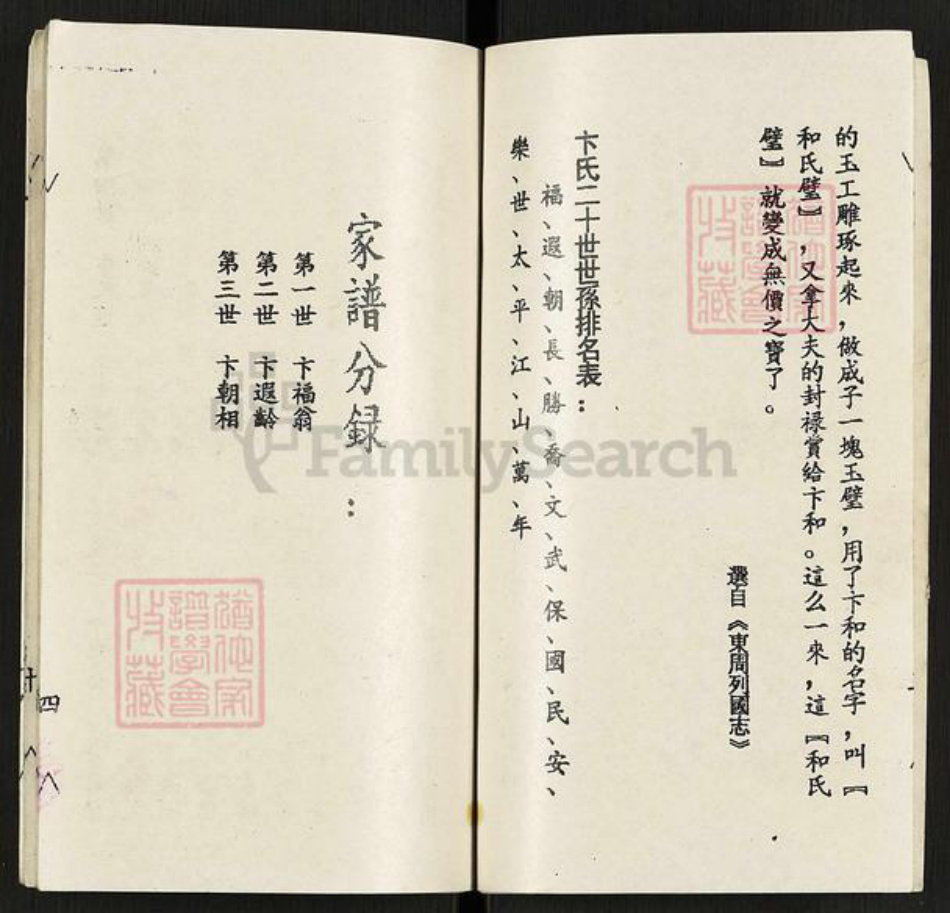 的玉工雕琢起來，做成子一塊玉璧，用了卞和的名字，叫〖
和氏璧〗，又拿大夫的封禄賞給卞和。這么一來，這〖和氏
璧〗就變成無價之寶了。
選自《東周列國志》
卞氏二十世世孫排名表：
福、遐、朝、長、勝、喬、文、武、保、國、民、安、
樂、世、太、平、江、山、萬、年
家譜分録：
第一世 卞福翁
第二世 卞遐齡
第三世 卞朝相
四
FamilySearch